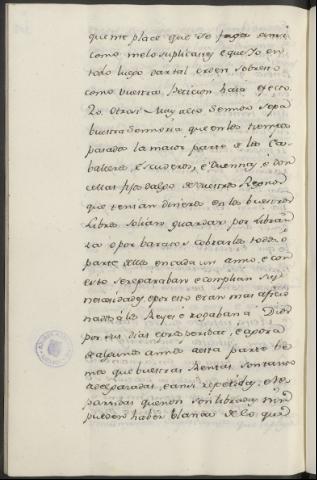 que me place que se faga assi
como me lo suplicades e que Yo en-
todo luego dar tal orden sobre ello
como vuestra Peticion haia efecto.
Otrosi Muy alto Señor sepa
buestra Señoria que en los tiempos
pasados la maior parte de los Ca-
balleros, e Escuderos, e Duennas, e don-
cellas fijosdalgo de vuestros Reynos
que tenian dineros en los buestros
Libros solian guardar por Libran-
za o por baratos cobrarlos todo o
parte dello en cada un anno, e con
esto se reparaban e complian sus
necesidades, e por esto eran mas aficio-
nados a los Reyes e rogaban a Dios
por sus dias e prosperidad, e agora
de algunos annos a esta parte be-
mos que buestras Rentas son tan
desesperadas, e an si repetidas, e los
partidas que non son libradas, nin
pueden haber blanca de lo que